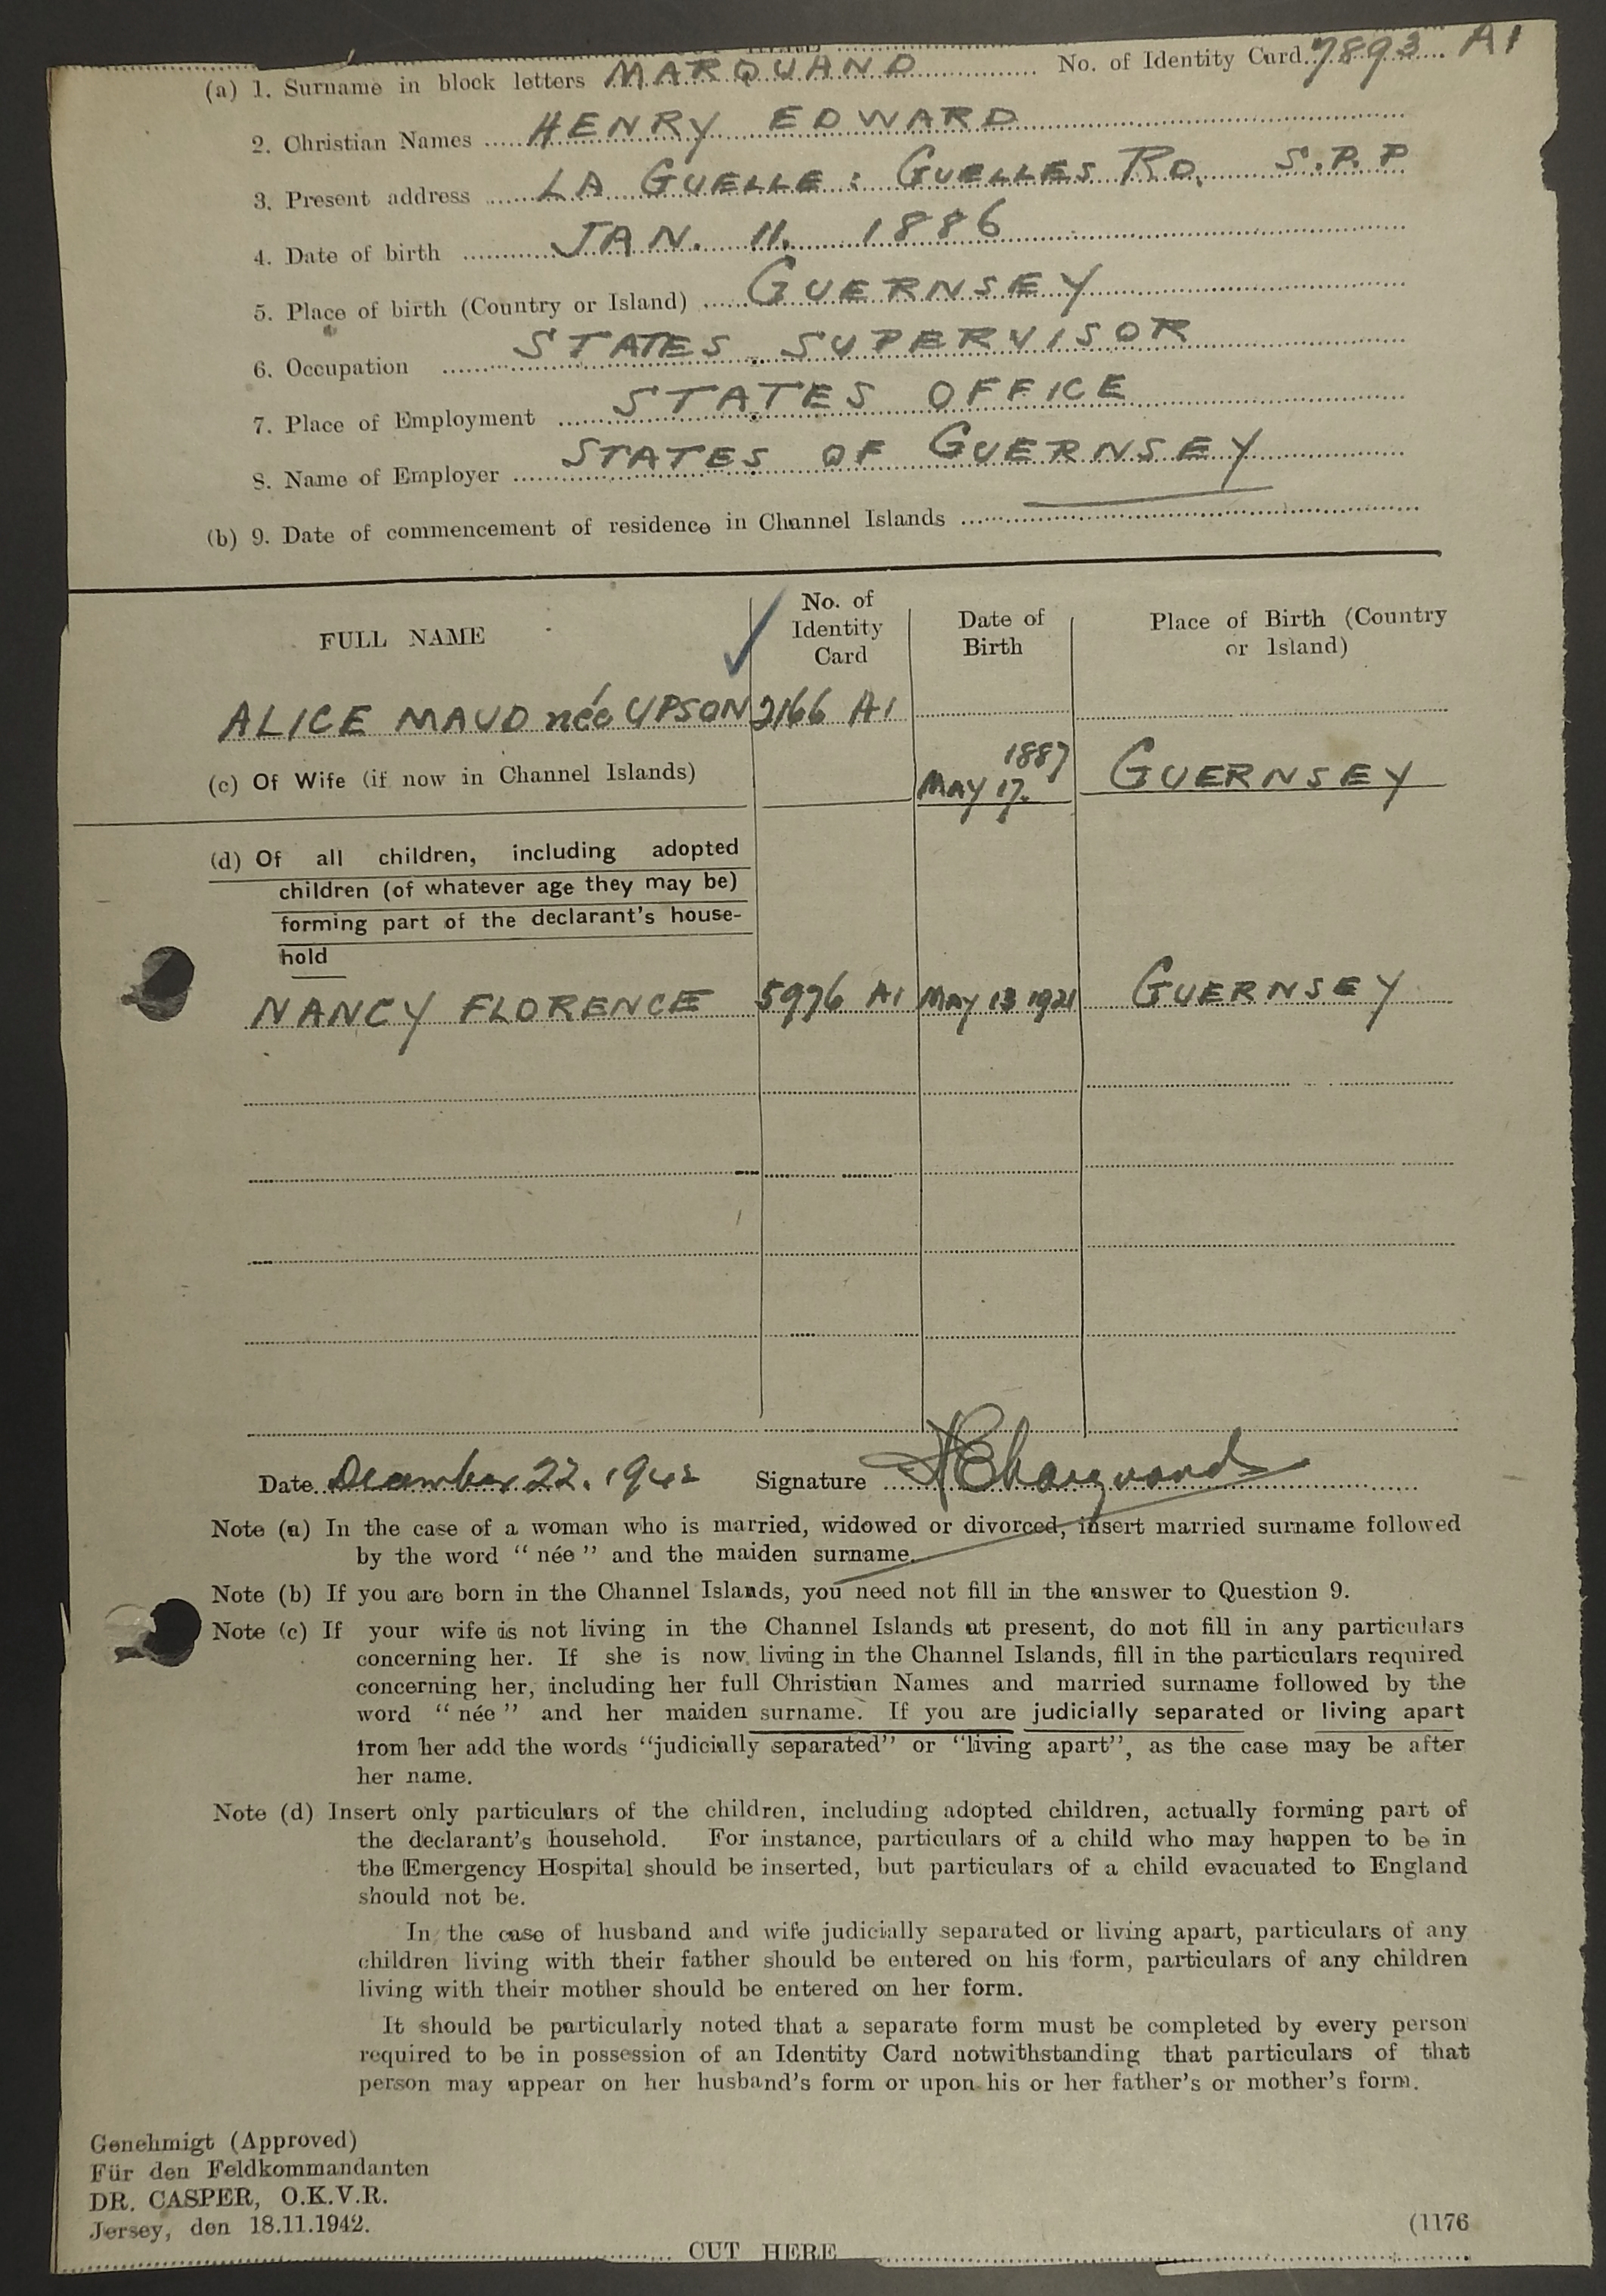 (a) 1. Surname in block letters MARQUAND No. of Identity Card 7893 A1
2. Christian Names HENRY EDWARD
3. Present address LA GUELLE : GUELLES RD. S.P.P
4. Date of birth JAN. 11. 1886
5. Place of birth (Country or Island) GUERNSEY
6. Occupation STATES SUPERVISOR
7. Place of Employment STATES OFFICE
8. Name of Employer STATES OF GUERNSEY
(b) 9. Date of commencement of residence in Channel Islands
FULL NAME No. of Identity Card Date of Birth Place of Birth (Country or Island)
ALICE MAUD née UPSON 2166 A1
(c) Of Wife (if now in Channel Islands) May 17. 1887 GUERNSEY
(d) Of all children, including adopted
children (of whatever age they may be)
forming part of the declarant's house-
hold
NANCY FLORENCE 5976 A1 May 13 1921 GUERNSEY
Date December 22. 1942 Signature HEMarquand
Note (a) In the case of a woman who is married, widowed or divorced, insert married surname followed
by the word "née" and the maiden surname.
Note (b) If you are born in the Channel Islands, you need not fill in the answer to Question 9.
Note (c) If your wife is not living in the Channel Islands at present, do not fill in any particulars
concerning her. If she is now living in the Channel Islands, fill in the particulars required
concerning her, including her full Christian Names and married surname followed by the
word "née" and her maiden surname. If you are judicially separated or living apart
from her add the words "judicially separated" or "living apart", as the case may be after
her name.
Note (d) Insert only particulars of the children, including adopted children, actually forming part of
the declarant's household. For instance, particulars of a child who may happen to be in
the Emergency Hospital should be inserted, but particulars of a child evacuated to England
should not be.
In the case of husband and wife judicially separated or living apart, particulars of any
children living with their father should be entered on his form, particulars of any children
living with their mother should be entered on her form.
It should be particularly noted that a separate form must be completed by every person
required to be in possession of an Identity Card notwithstanding that particulars of that
person may appear on her husband's form or upon his or her father's or mother's form.
Genehmigt (Approved)
Für den Feldkommandanten
DR. CASPER, O.K.V.R.
Jersey, den 18.11.1942.
(1176
CUT HERE